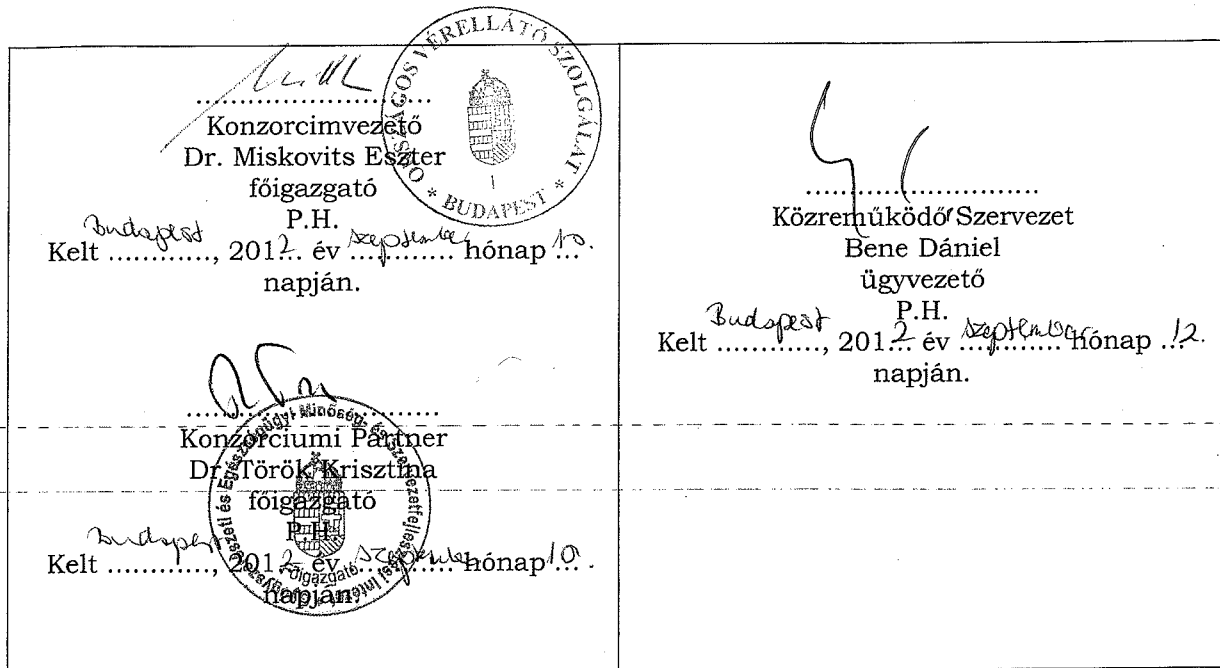 ORSZÁGOS VÉRELLÁTÓ SZOLGÁLAT
* BUDAPEST *
I
........................
Konzorcimvezető
Dr. Miskovits Eszter
főigazgató
P.H.
Kelt Budapest, 2012 év szeptember hónap 10.
napján.
........................
Konzorciumi Partner
Dr. Török Krisztina
főigazgató
P.H.
Kelt Budapest, 2012 év szeptember hónap 10.
napján.
Egészségügyi Minőség- és Szervezetfejlesztési Intézet
Főigazgató
........................
Közreműködő Szervezet
Bene Dániel
ügyvezető
P.H.
Kelt Budapest, 2012 év szeptember hónap 12.
napján.